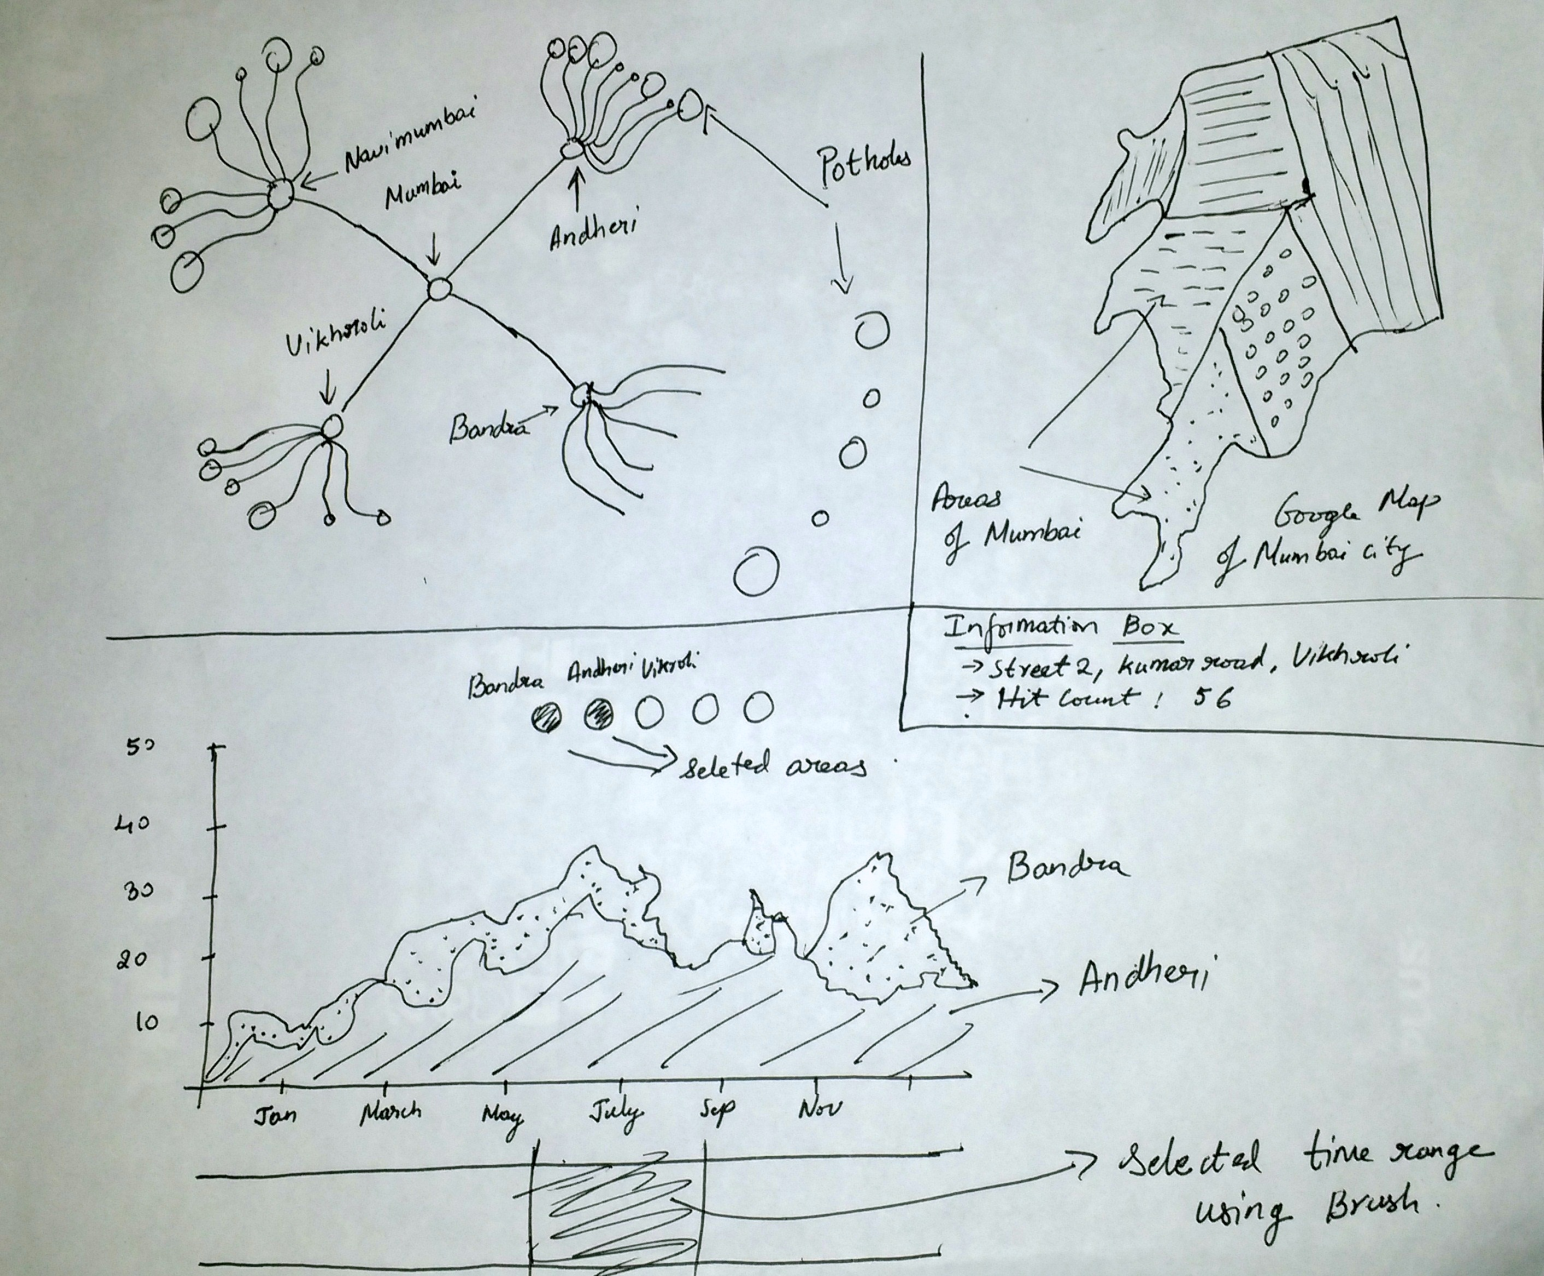 Navimumbai
Mumbai
Andheri
Potholes
Vikhroli
Bandra
Areas
of Mumbai
Google Map
of Mumbai city
Information Box
→ Street 2, Kumar road, Vikhroli
→ Hit Count : 56
Bandra Andheri Vikroli
Seleted areas
50
40
30
20
10
Bandra
Andheri
Jan March May July Sep Nov
Selected time range
using Brush.